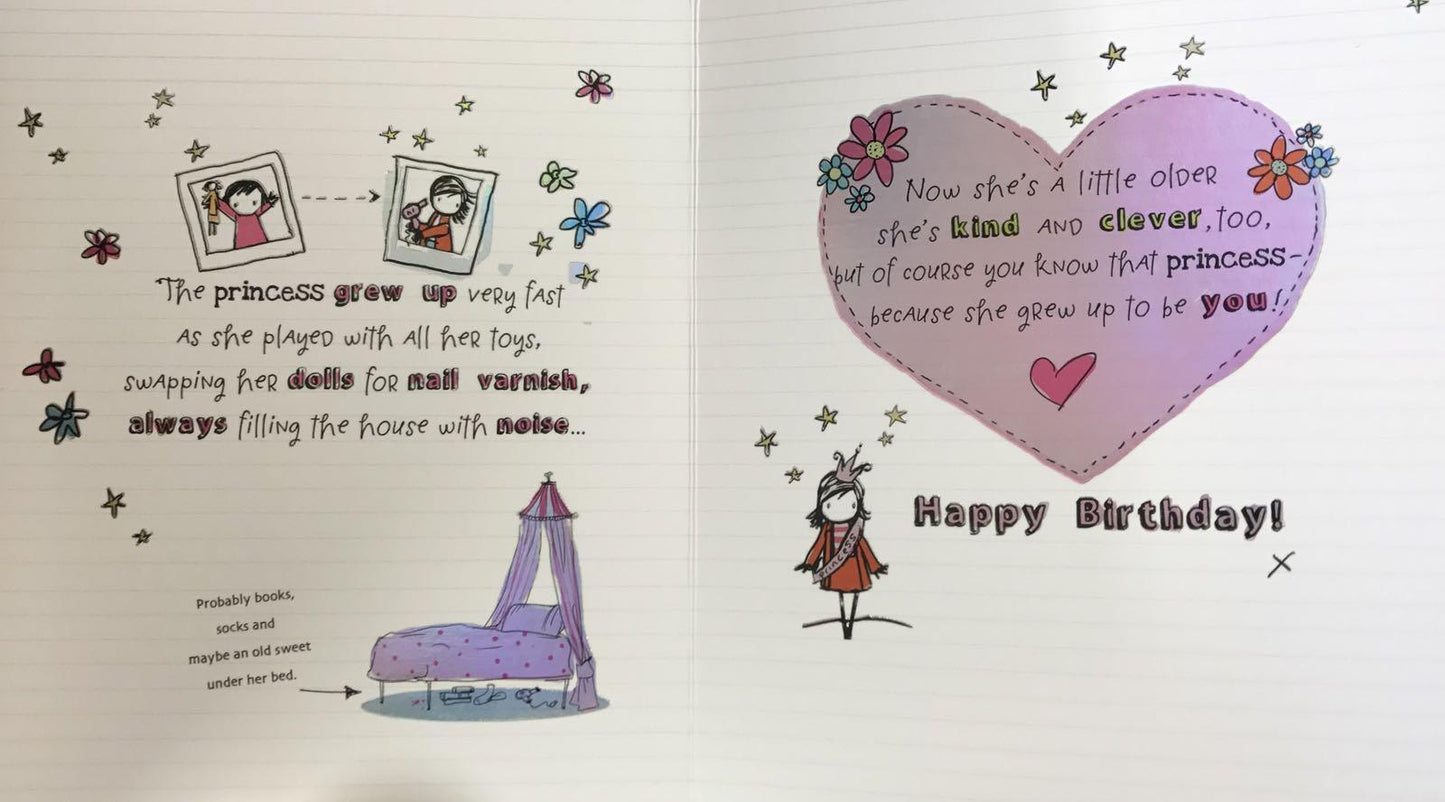 The princess grew up very fast
As she played with all her toys,
swapping her dolls for nail varnish,
always filling the house with noise...
Probably books,
socks and
maybe an old sweet
under her bed.
Now she's a little older
she's kind and clever, too,
but of course you know that princess-
because she grew up to be you!
princess
Happy Birthday!
X